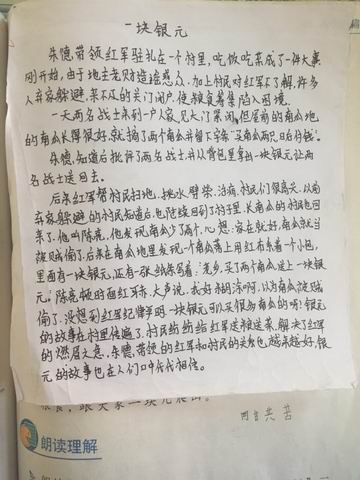 一块银元
朱德带领红军驻扎在一个村里,吃饭吃菜成了一件大事
刚开始,由于地主老财造谣惑众,加上村民对红军不了解,许多
人弃家躲避,来不及的关门闭户,使粮食筹集陷入困境。
一天两名战士来到一户人家,见大门紧闭,但屋前的南瓜地
的南瓜长得很好,就摘了两个南瓜并留下字条"买南瓜两只日后付钱"。
朱德知道后批评了两名战士并从背包里拿出一块银元让两
名战士送回去。
后来红军帮村民扫地,挑水,劈柴,治病,村民们很高兴,以前
弃家躲避的村民知道后,也陆续回到了村子里,长南瓜的村民也回
来了,他叫陈亮,他发现南瓜少了两个,心想:家在就好,南瓜就当
被贼偷了,后来在南瓜地里发现一个南瓜蒂上用红布系着一个小包,
里面有一块银元,还有一张纸条写着:"老乡,买了两个南瓜送上一块银
元。"陈亮顿时面红耳赤,大声说,我好糊涂啊,以为南瓜被贼
偷了,没想到红军纪律严明一块银元可以买很多南瓜的呀!银元
的故事在村里传遍了,村民纷纷给红军送粮送菜,解决了红军
的燃眉之急,朱德带领的红军和村民的关系也越来越好,银
元的故事也在人们口中代代相传。
朗读理解